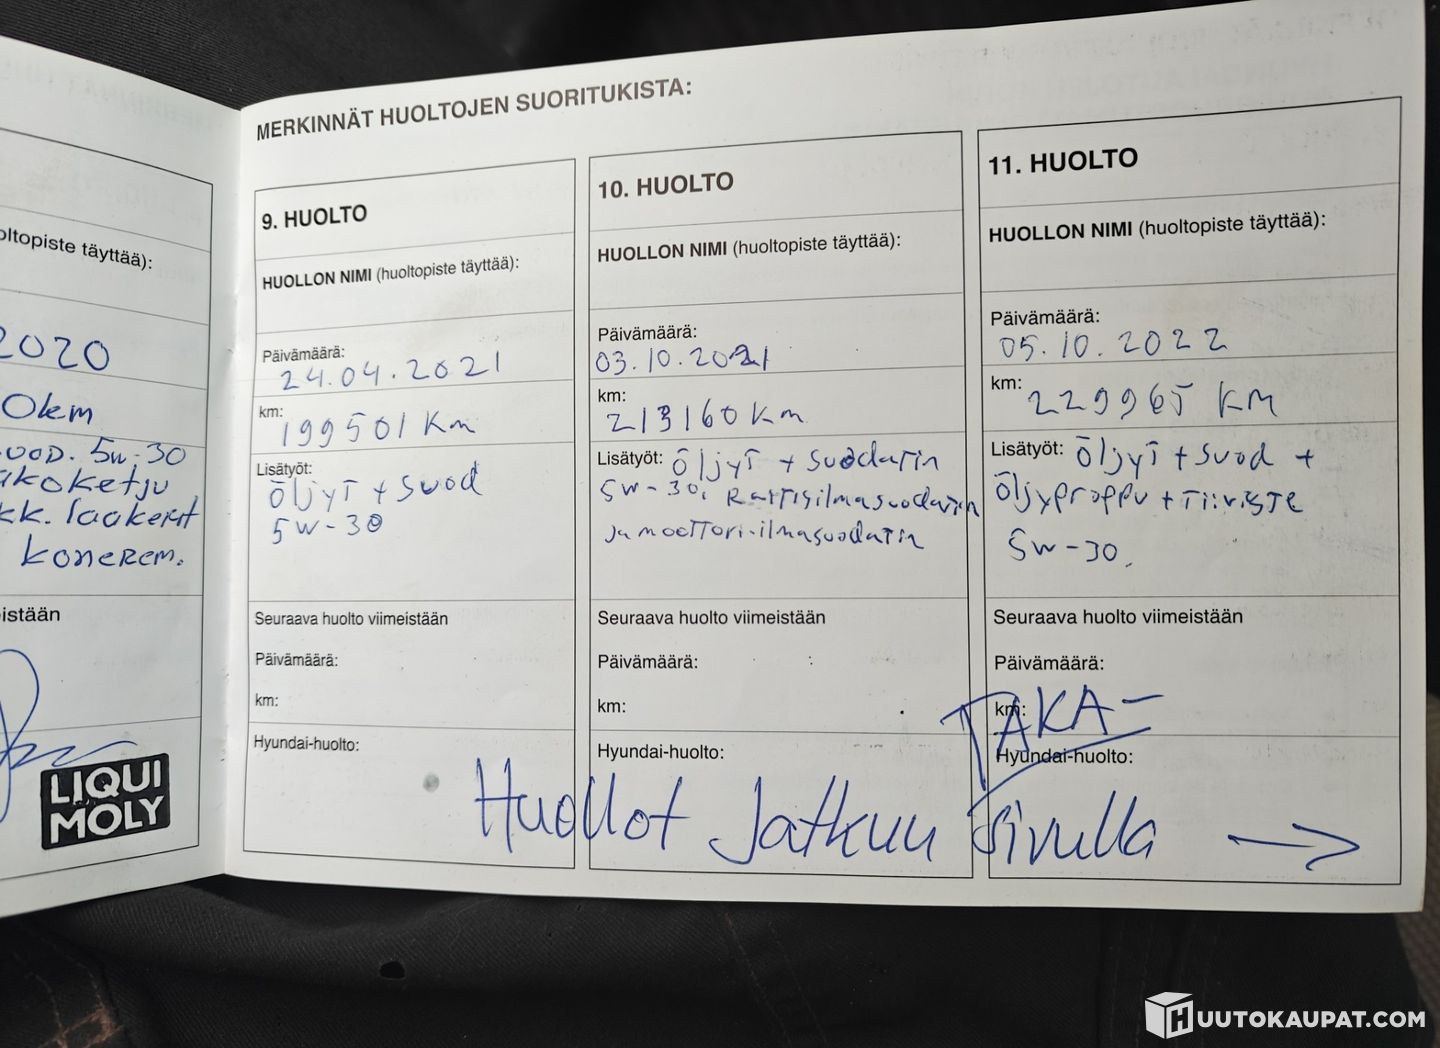 oltopiste täyttää):
2020
0km
5w-30
laakerit
konerem.
istään
LIQUI
MOLY
MERKINNÄT HUOLTOJEN SUORITUKISTA:
9. HUOLTO
HUOLLON NIMI (huoltopiste täyttää):
Päivämäärä:
24.04.2021
km:
199501 Km
Lisätyöt:
Öljyt + suod
5w-30
Seuraava huolto viimeistään
Päivämäärä:
km:
Hyundai-huolto:
10. HUOLTO
HUOLLON NIMI (huoltopiste täyttää):
Päivämäärä:
03.10.2021
km:
213160 Km
Lisätyöt: Öljyt + suodatin
5w-30, Raitisilmasuodatin
ja moottori-ilmasuodatin
Seuraava huolto viimeistään
Päivämäärä:
km:
Hyundai-huolto:
11. HUOLTO
HUOLLON NIMI (huoltopiste täyttää):
Päivämäärä:
05.10.2022
km:
229965 KM
Lisätyöt: Öljyt + suod +
Öljyproppu + tiiviste
5w-30.
Seuraava huolto viimeistään
Päivämäärä:
km:
Hyundai-huolto:
TAKA-
Huollot Jatkuu sivulla →
HUUTOKAUPAT.COM